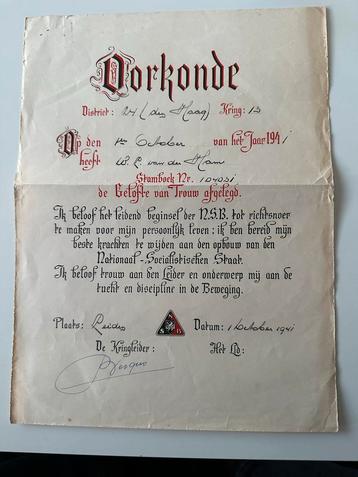 Oorkonde
District: 24 (den Haag) Kring: 13
Op den 1e October van het Jaar 1941
heeft W. C. van der Ham
Stamboek Nr. 104031
de Belofte van Trouw afgelegd.
Ik beloof het leidend beginsel der N.S.B. tot richtsnoer
te maken voor mijn persoonlijk leven; ik ben bereid mijn
beste krachten te wijden aan den opbouw van den
Nationaal-Socialistischen Staat.
Ik beloof trouw aan den Leider en onderwerp mij aan de
tucht en discipline in de Beweging.
Plaats: Leiden Datum: 1 October 1941
De Kringleider: Het Lid: